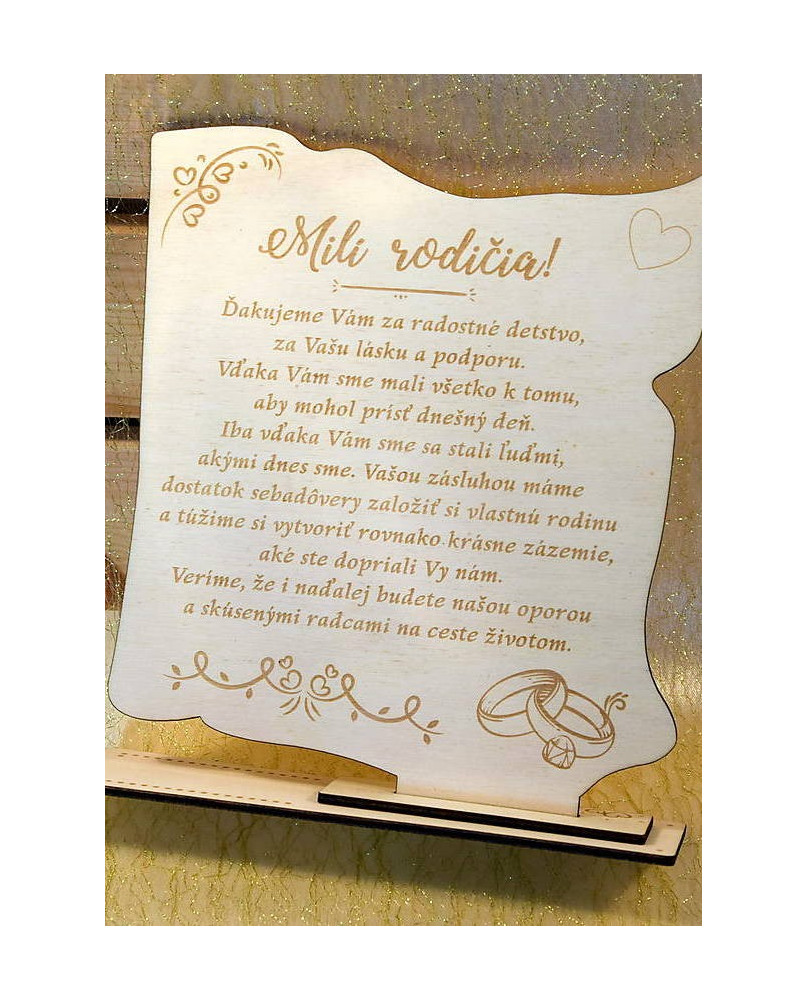 Milí rodičia!
Ďakujeme Vám za radostné detstvo,
za Vašu lásku a podporu.
Vďaka Vám sme mali všetko k tomu,
aby mohol prísť dnešný deň.
Iba vďaka Vám sme sa stali ľuďmi,
akými dnes sme. Vašou zásluhou máme
dostatok sebadôvery založiť si vlastnú rodinu
a túžime si vytvoriť rovnako krásne zázemie,
aké ste dopriali Vy nám.
Veríme, že i naďalej budete našou oporou
a skúsenými radcami na ceste životom.